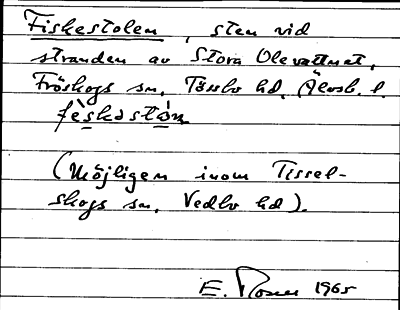 Fiskestolen, sten vid
stranden av Stora Olevattnet,
Fröskogs sn, Tössbo hd, Älvsb. l.
fèskastòn
(Möjligen inom Tissel-
skogs sn, Vedbo hd).
E. 1965